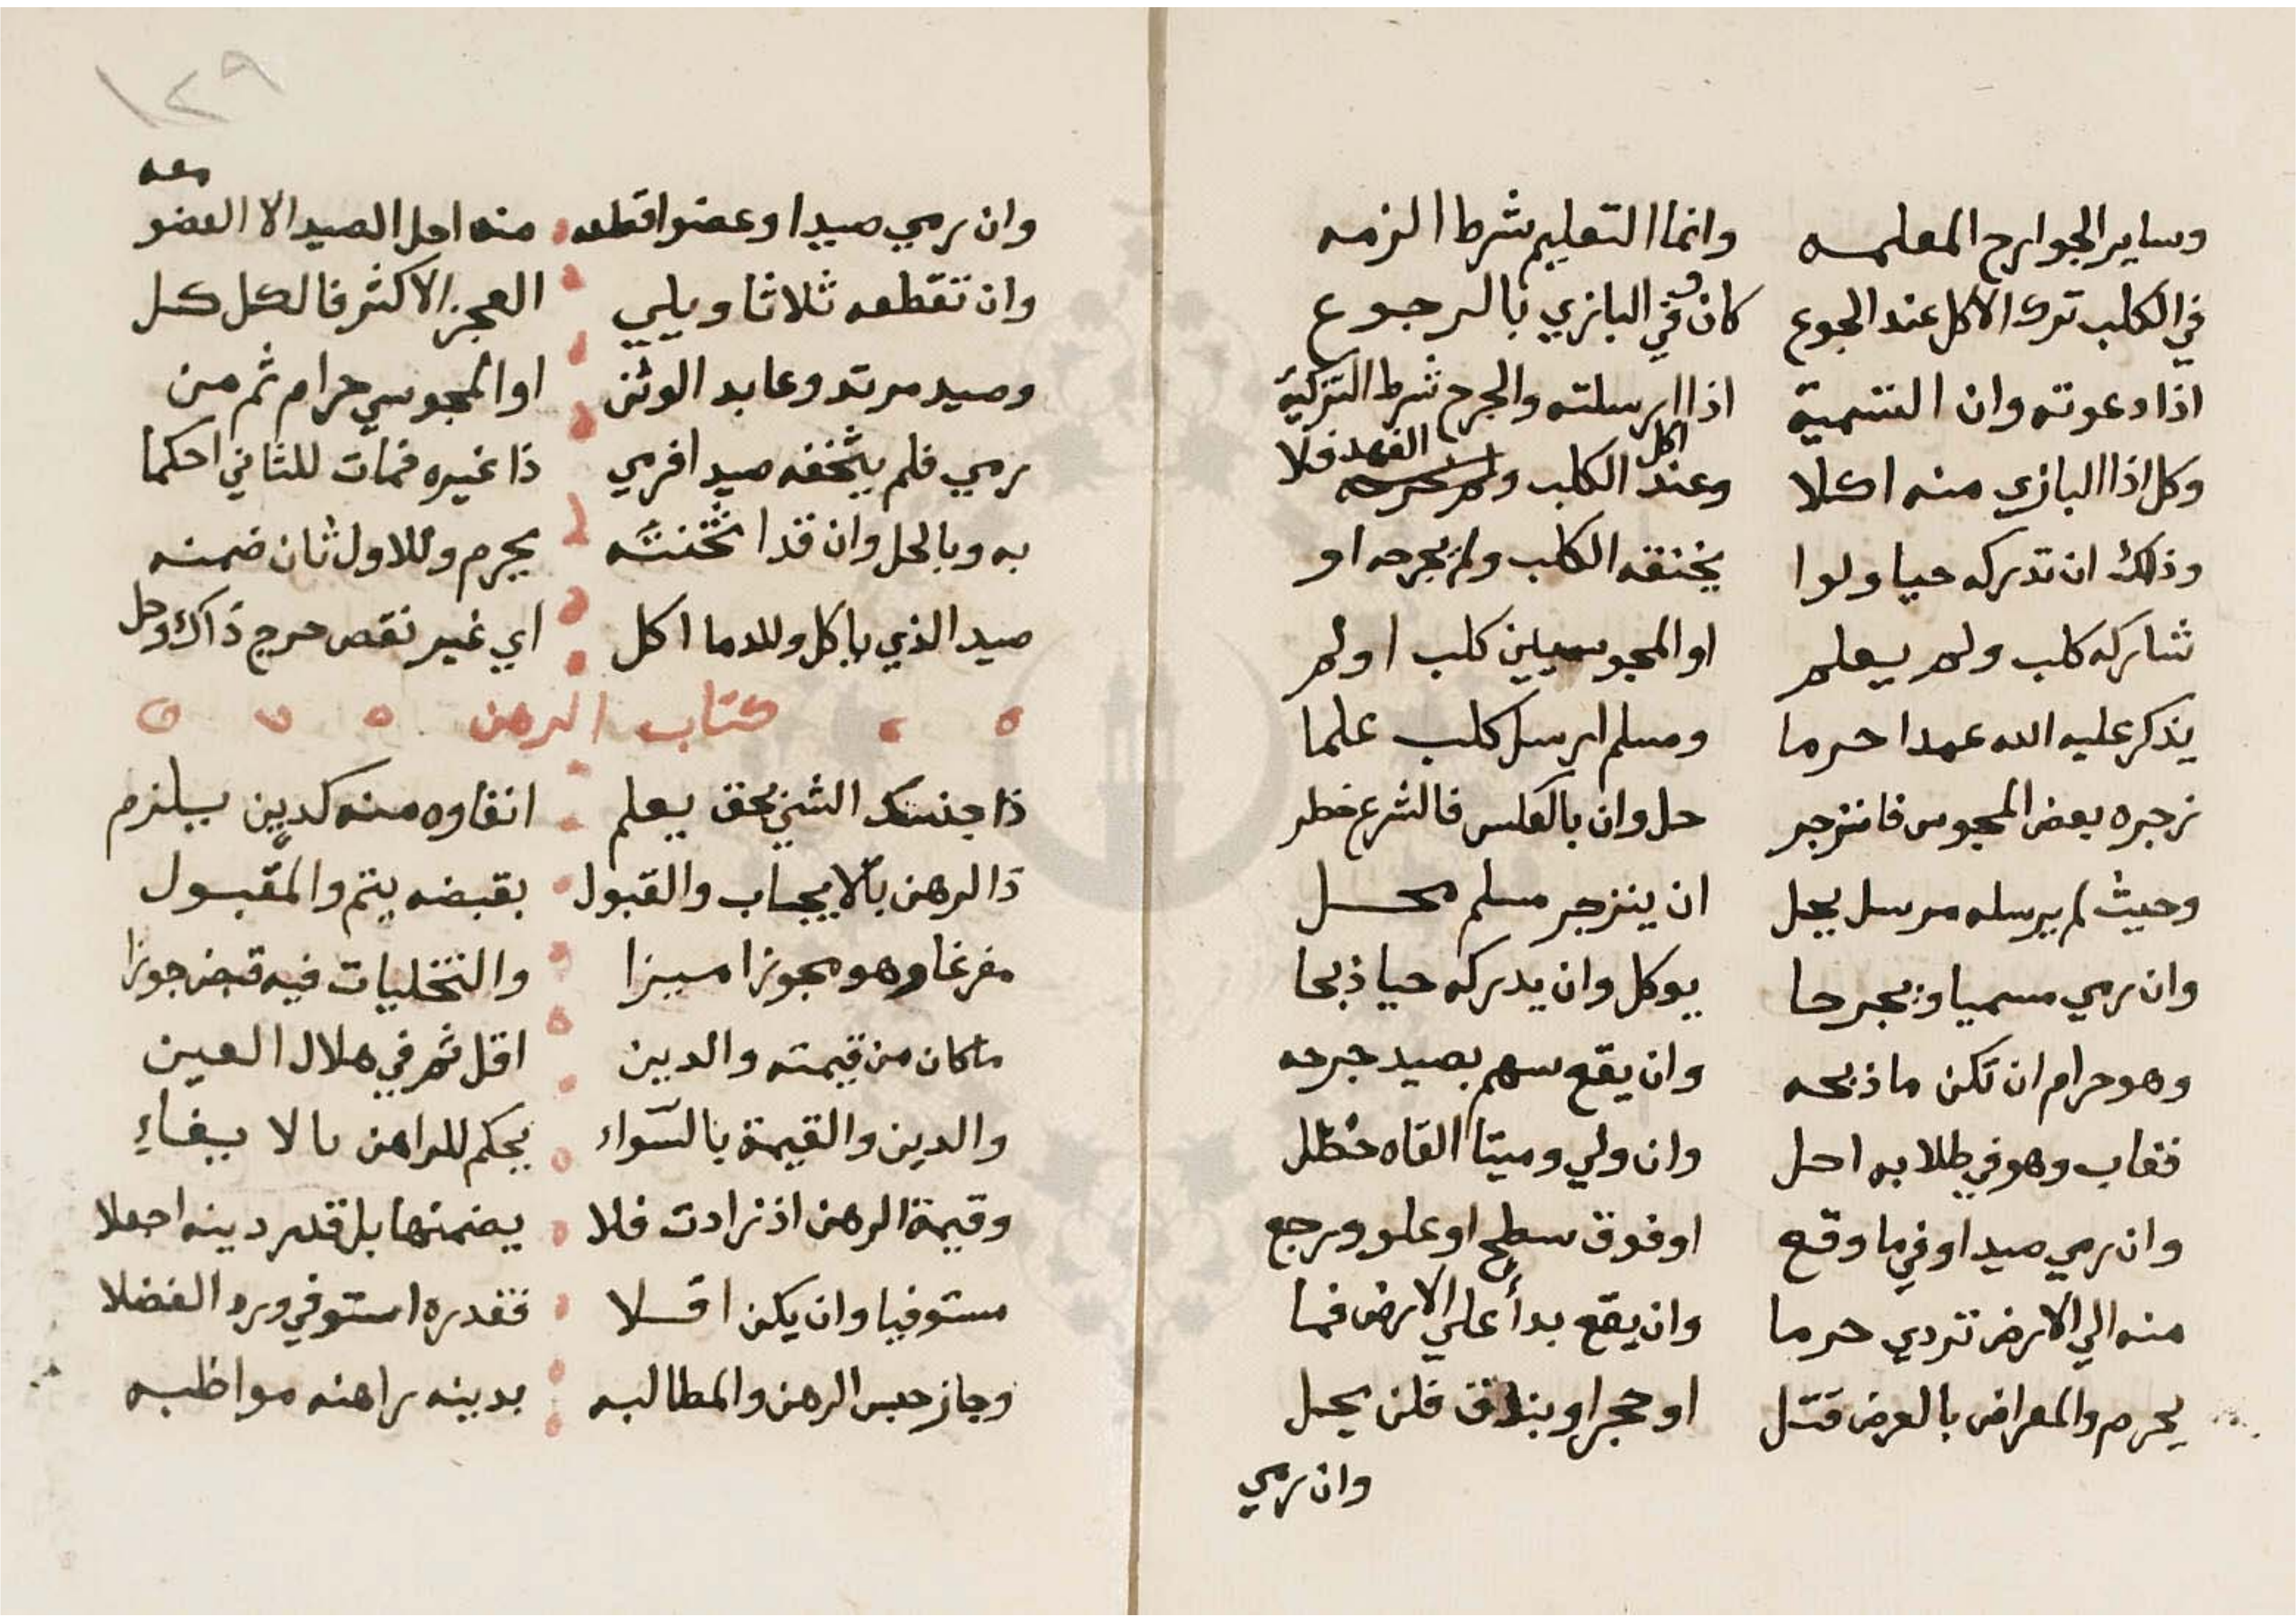 وساير الجوارح المعلمه وانما التعليم شرط الزمه
في الكلب ترك الاكل عند الجوع كان وفي البازي بالرجوع
اذا دعوته وان التسمية اذا ارسلته والجرح شرط التزكية
وكل اذا البازي منه اكلا وعند اكل الكلب والفهد فلا
وذلك ان تدركه حيا ولوا يخنقه الكلب ولم يجرحه او
شاركه كلب ولم يعلم او المجوسيين كلب او لم
يذكر عليه الله عمدا حرما ومسلم ارسل كلب علما
زجره بعض المجوس فانزجر حل وان بالعكس فالشرع خطر
وحيث لم يرسله مرسل يحل ان ينزجر مسلم محل
وان رمي مسميا وبجرحا يوكل وان يدركه حيا ذبحا
وهو حرام ان تكن ما ذبحه وان يقع سهم بصيد جرحه
فغاب وهو في طلابه احل وان ولي وميتا القاه خظل
وان رمي صيدا وفي ما وقع او فوق سطح او علو ورجع
منه الي الارض تردي حرما وان يقع بدأ علي الارض فما
يحرم والمعراض بالعرض قتل او حجر او بندق فلن يحل
وان رمي
١٢٩
وان رمي صيدا وعضوا قطعه منه احل الصيد الا العضو معه
وان تقطعه ثلاثا ويلي العجز الاكثر فالكل كل
وصيد مرتد وعابد الوثن او المجوسي حرام ثم من
رمي فلم يثخنه صيدا فرمي ذا غيره فمات للثاني احكما
به وبالحل وان قد اثخنته يحرم وللاول ثان ضمنه
صيد الذي ياكل وللدما اكل اي غير نقص حرج ذاك وحل
كتاب الرهن
ذا جنسك الشي بحق يعلم انفاوه منه كدين يلزم
ذا الرهن بالايجاب والقبول بقبضه يتم والمقبول
مفرغا وهو مجوزا ميزا والتخليات فيه قبض جوزا
ما كان من قيمته والدين اقل ثم في هلال العين
والدين والقيمة بالسواء يحكم للراهن بالا يفاء
وقيمة الرهن اذ زادت فلا يضمنها بل قدر دينه اجعلا
مستوفيا وان يكن اقلا فقدره استوفي ورد الفضلا
وجاز حبس الرهن والمطالبه بدينه راهنه مواظبه